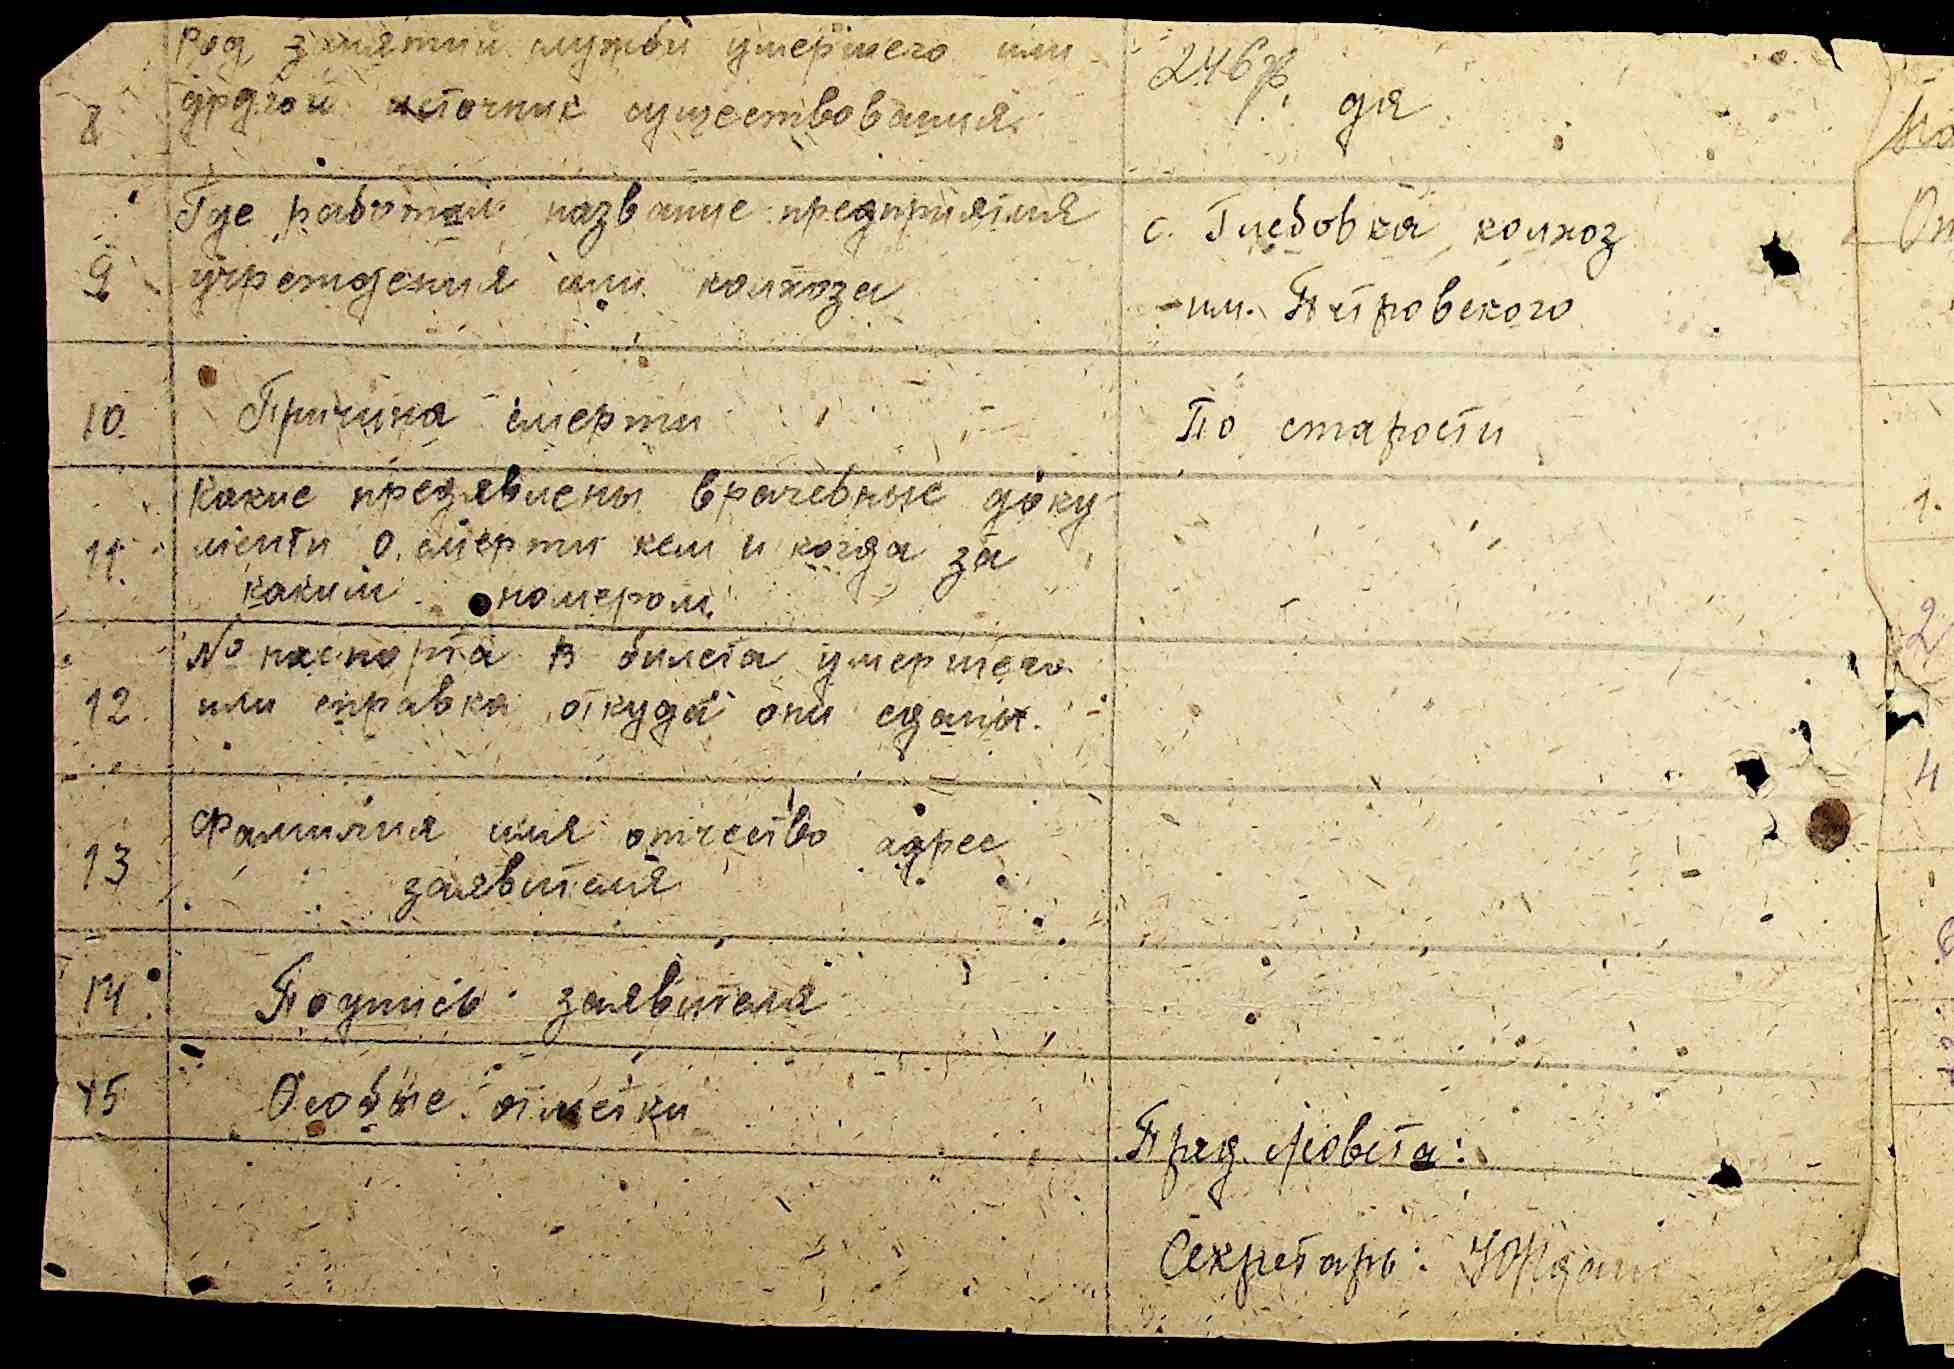 Род занятий службы умершего или
8 другой источник существования.
246 р. дя
Где работал название предприятия
9 учреждения или колхоза
с. Глебовка колхоз
им. Петровского
10. Причина смерти
По старости
Какие предявлены врачебные доку
11. менти о смерти кем и когда за
каким номером.
№ паспорта В билета умершего
12. или справка откуда они сданы.
Фамилия имя отчество адрес
13 заявителя
14. Подпись заявителя
15 Особые отметки
Пред. с/совета:
Секретарь:
1.
2
4